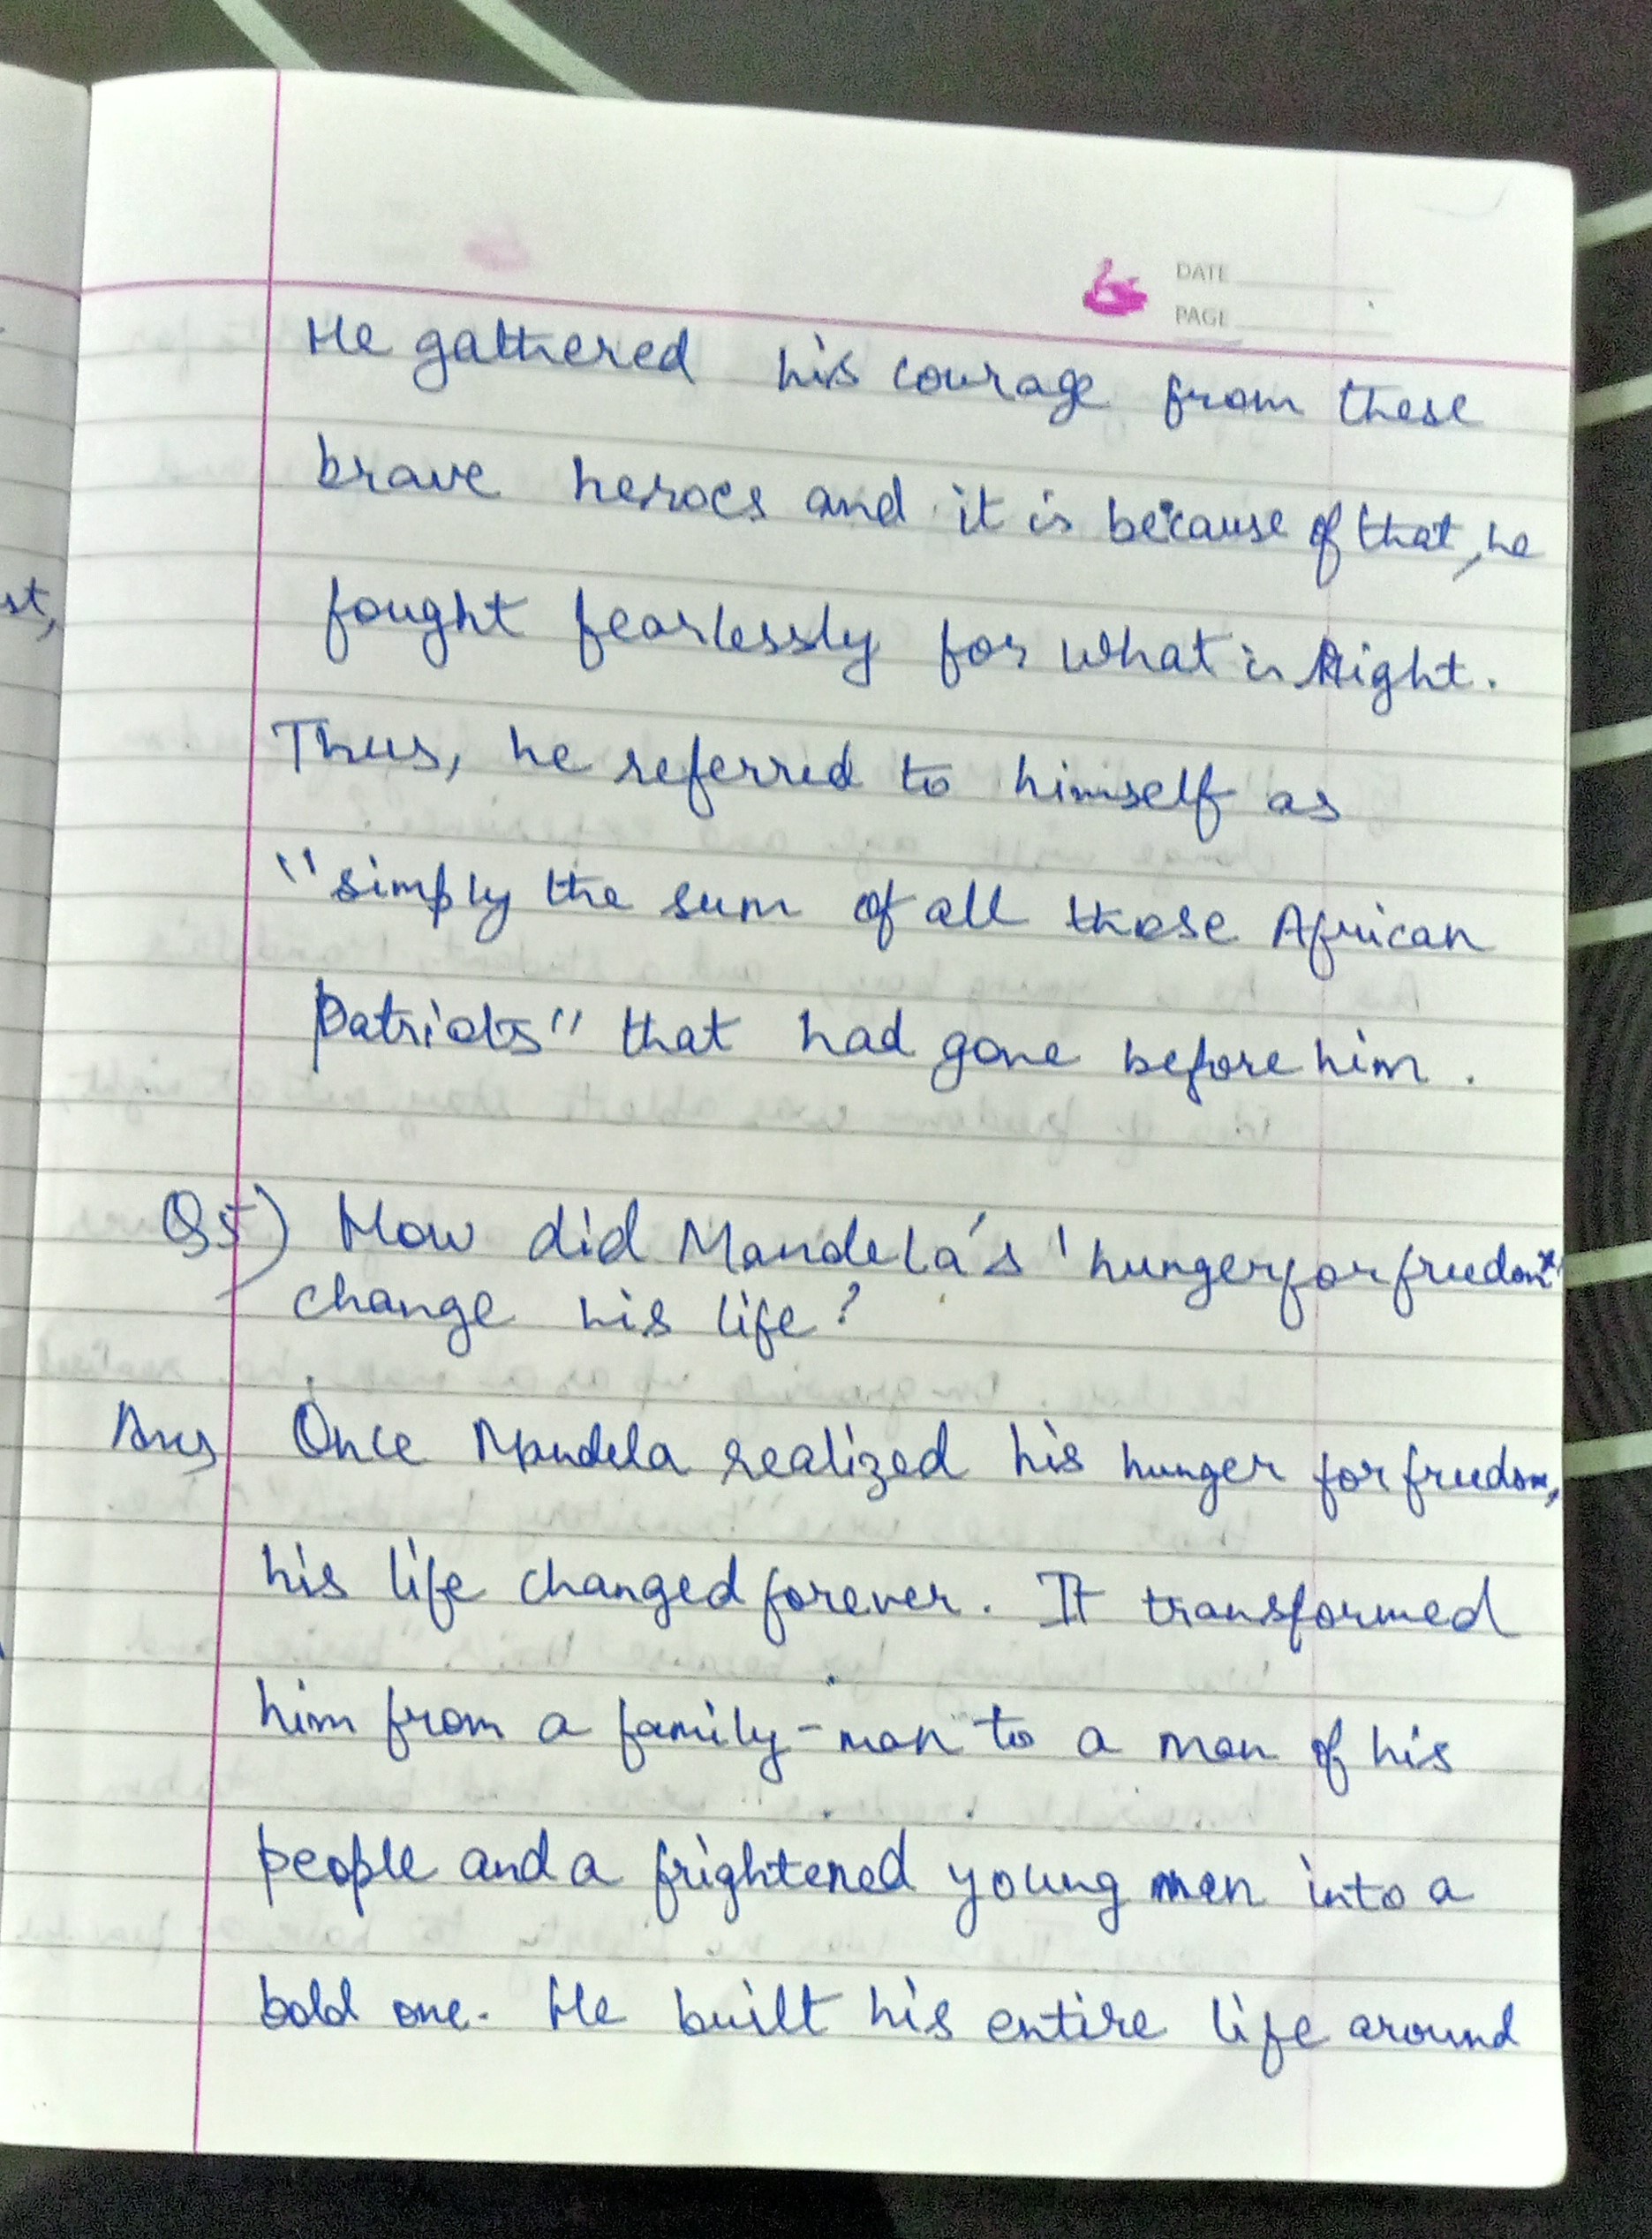 DATE
PAGE
He gathered his courage from these
brave heroes and it is because of that, he
fought fearlessly for what is Right.
Thus, he referred to himself as
"simply the sum of all those African
Patriots" that had gone before him.
Q5) How did Mandela's 'hunger for freedom'
change his life?
Ans Once Mandela realized his hunger for freedom,
his life changed forever. It transformed
him from a family-man to a man of his
people and a frightened young man into a
bold one. He built his entire life around
st,